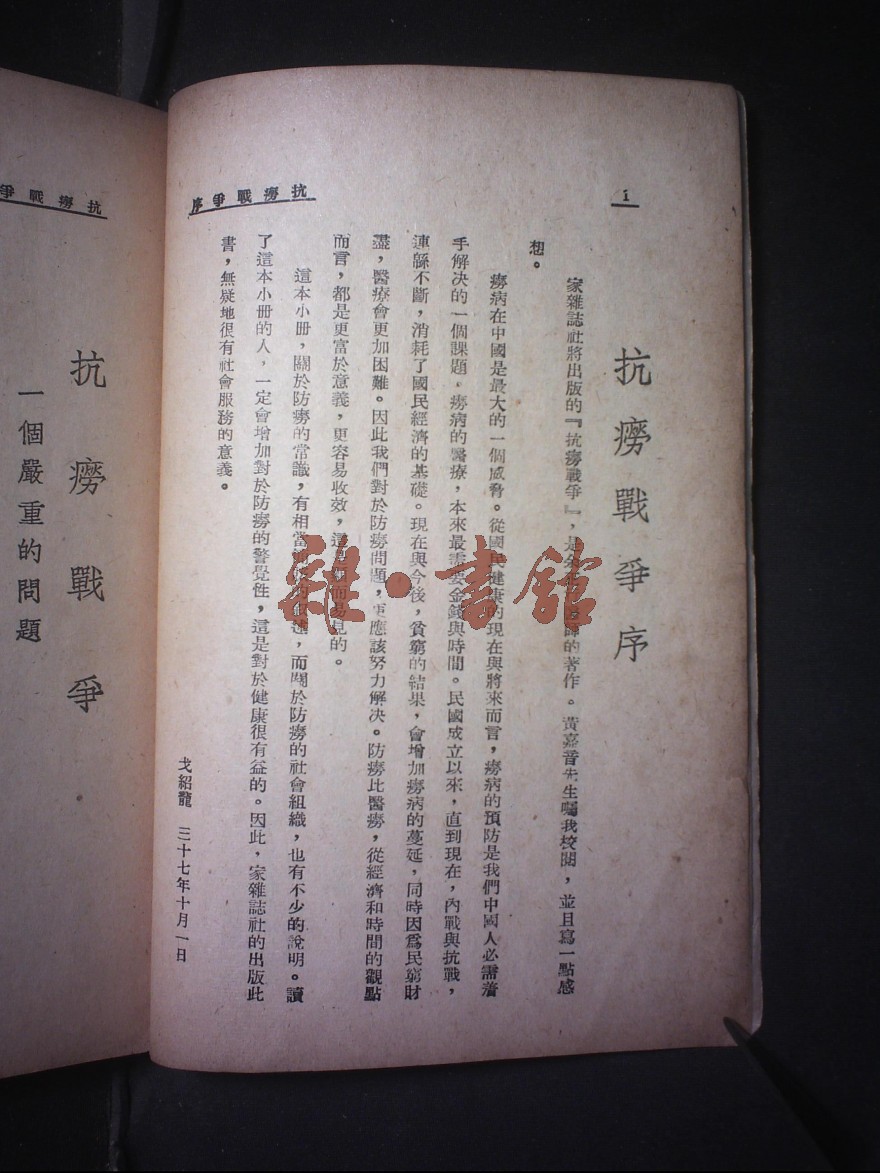 1
抗癆戰爭序
抗癆戰爭序
家雜誌社將出版的『抗癆戰爭』，是 的著作。黃嘉音先生囑我校閱，並且寫一點感
想。
癆病在中國是最大的一個威脅。從國民健康的現在與將來而言，癆病的預防是我們中國人必需着
手解決的一個課題。癆病的醫療，本來最需要金錢與時間。民國成立以來，直到現在，內戰與抗戰，
連緜不斷，消耗了國民經濟的基礎。現在與今後，貧窮的結果，會增加癆病的蔓延，同時因爲民窮財
盡，醫療會更加困難。因此我們對於防癆問題，更應該努力解決。防癆比醫癆，從經濟和時間的觀點
而言，都是更富於意義，更容易收效，這是 而易見的。
這本小册，關於防癆的常識，有相當 的 述，而關於防癆的社會組織，也有不少的說明。讀
了這本小册的人，一定會增加對於防癆的警覺性，這是對於健康很有益的。因此，家雜誌社的出版此
書，無疑地很有社會服務的意義。
戈紹龍 三十七年十月一日
雜·書館
抗癆戰爭
抗癆戰爭
一個嚴重的問題